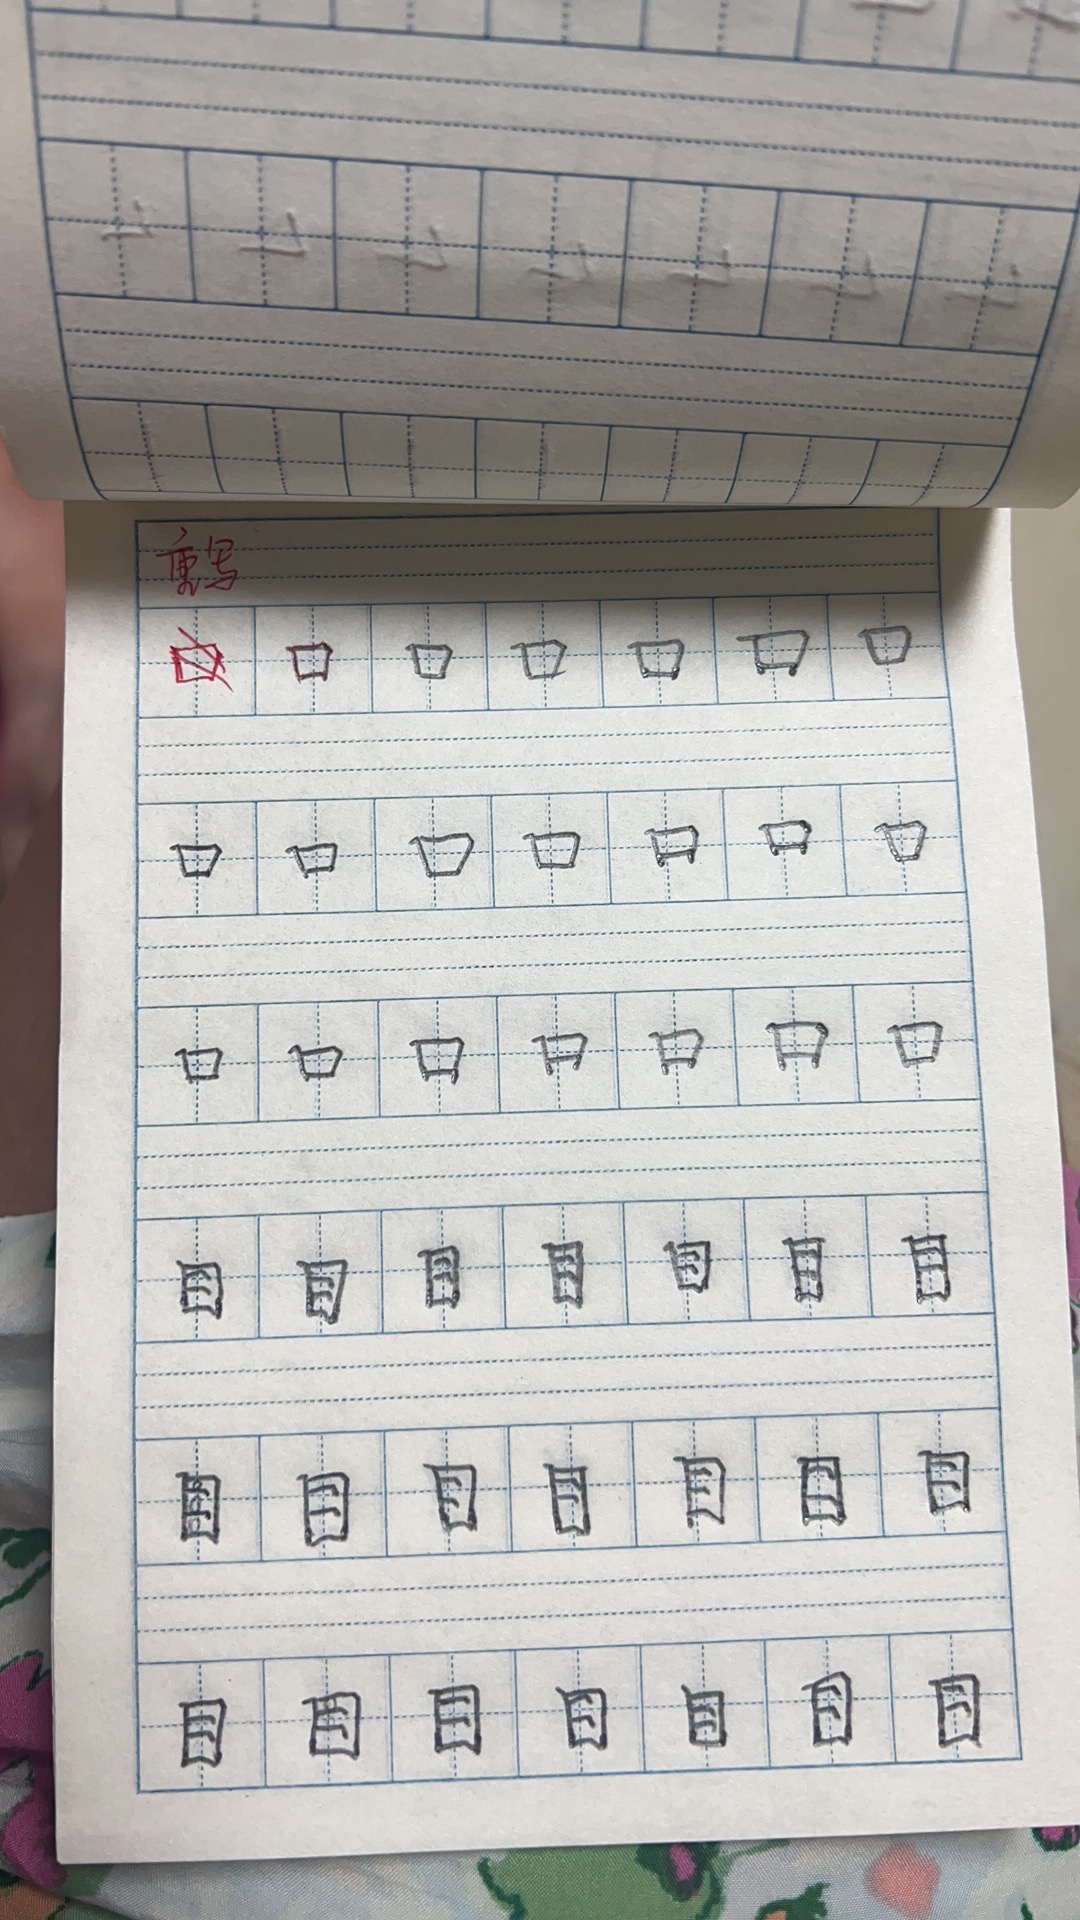 重写
口 口 口 口 口 口 口
口 口 口 口 口 口 口
口 口 口 口 口 口 口
目 目 目 目 目 目 目
目 目 目 目 目 目 目
目 目 目 目 目 目 目